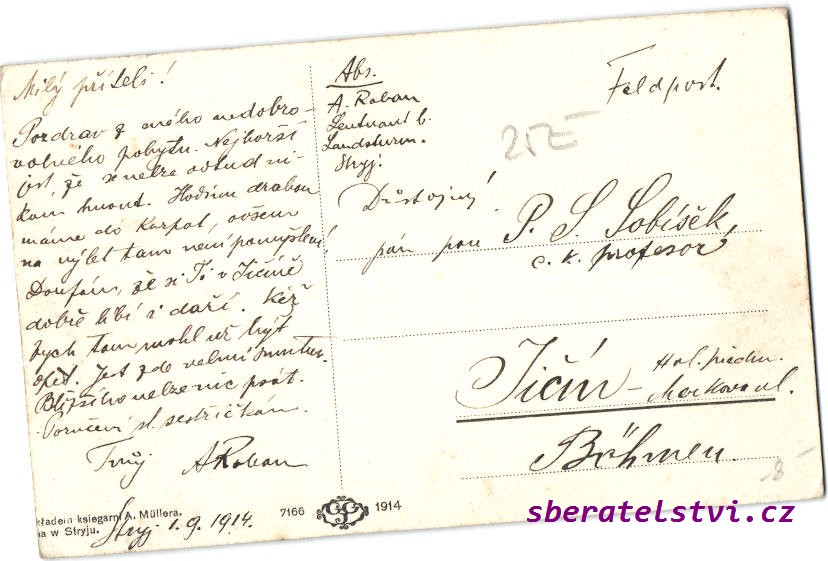 Milý příteli!
Pozdrav z mého nedobro-
volného pobytu. Nejhorší
jest že se nelze odtud ni-
kam hnout. Hodinu drahou
máme do Karpat, ovšem
na výlet tam není pomyšlení,
Doufám, že si Ti v Jičíně
dobře líbí i daří. Kéž
bych tam mohl už být
opět. Jest zde velmi smutno.
Bližšího nelze nic psát.
Poručení sl. sestřičkám.
Tvůj ARoban
Abs.
A. Roban
Leutnant b.
Landsturm.
Stryj.
Feldpost.
25Z-
Důstojný
pán pan P. S. Sobíšek
c. k. profesor
Jičín -
Böhmen.
8-
kładem ksiegarni A. Müllera.
na w Stryju.
Stryj 1.9.1914.
7166
1914
sberatelstvi.cz